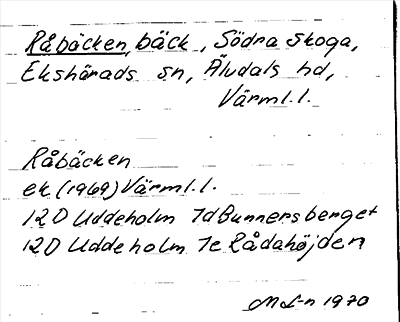 Råbäcken, bäck, Södra Skoga,
Ekshärads sn, Älvdals hd,
Värml. l.
Råbäcken
ek (1969) Värml. l.
12D Uddeholm 7d Bunnersberget
12D Uddeholm 7e Rådahöjden
M L-n 1970